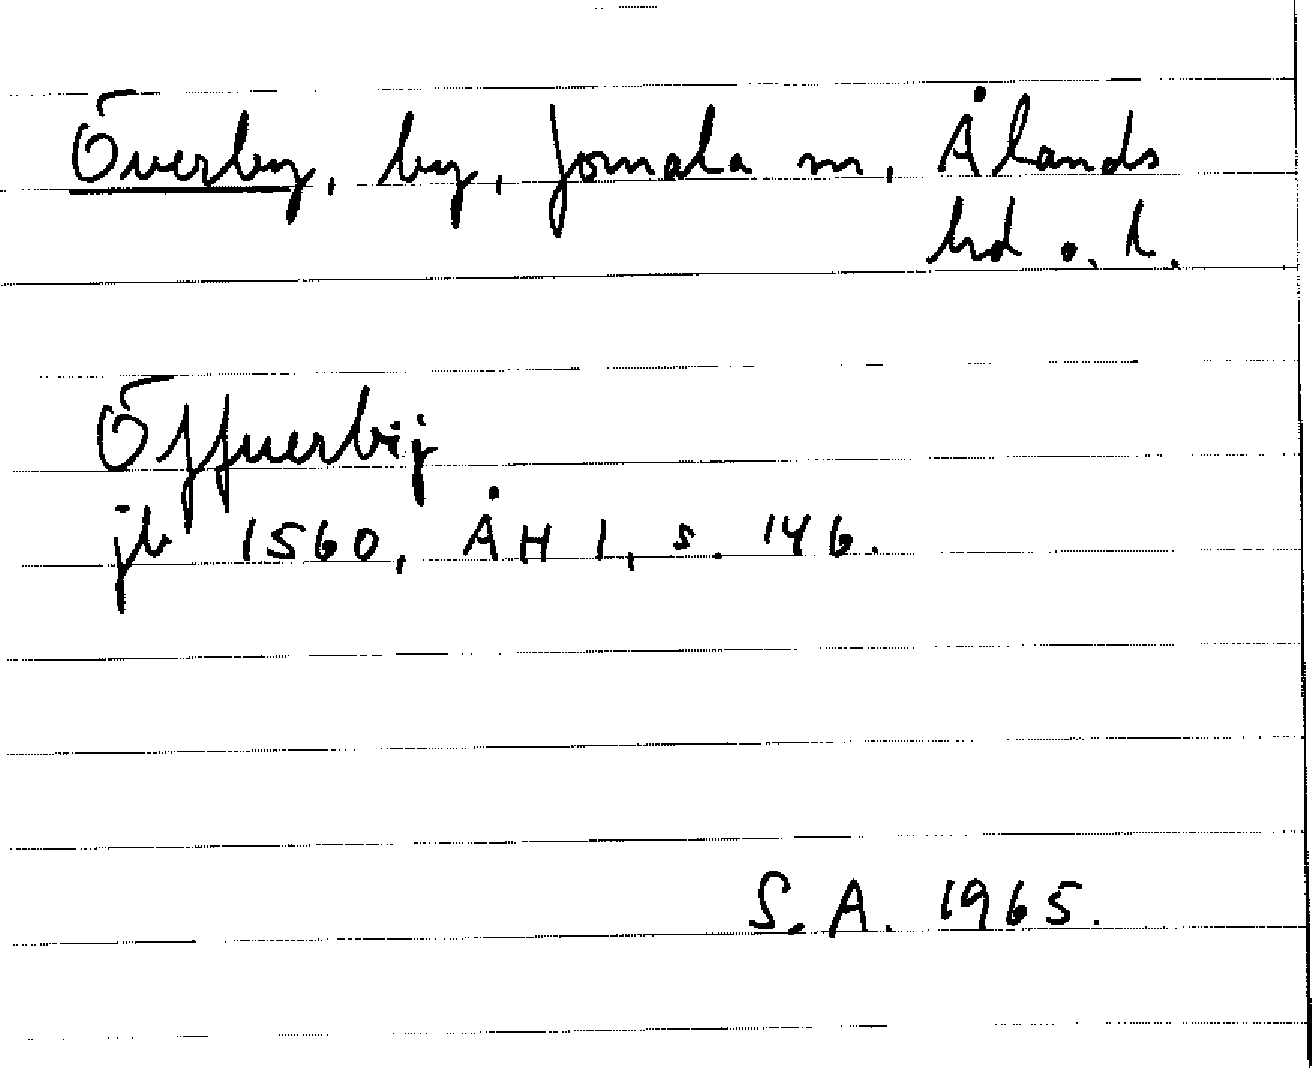 Överby, by, Jomala sn, Ålands
hd o. l.
Öffuerbij
jb 1560, ÅH I, s. 146.
S. A. 1965.